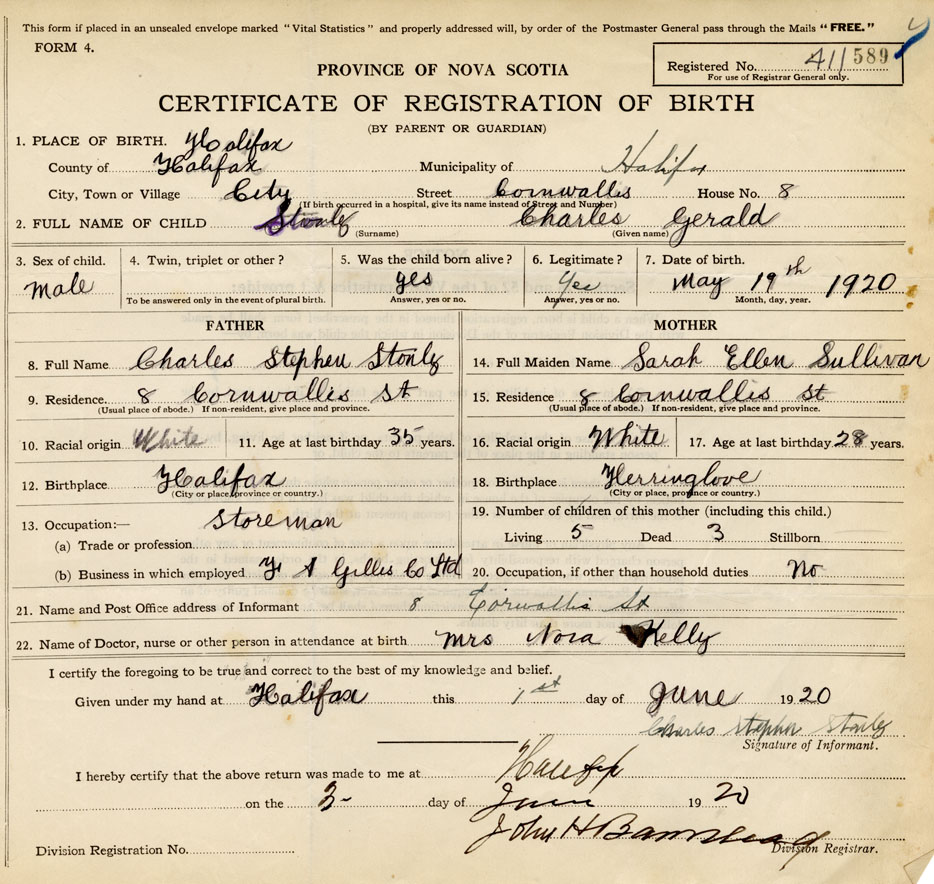 This form if placed in an unsealed envelope marked "Vital Statistics" and properly addressed will, by order of the Postmaster General pass through the Mails "FREE."
FORM 4.
Registered No. 411589
For use of Registrar General only.
PROVINCE OF NOVA SCOTIA
CERTIFICATE OF REGISTRATION OF BIRTH
(BY PARENT OR GUARDIAN)
1. PLACE OF BIRTH. Halifax
County of Halifax Municipality of Halifax
City, Town or Village City Street Cornwallis House No. 8
(If birth occurred in a hospital, give its name instead of Street and Number)
2. FULL NAME OF CHILD Stonly Charles Gerald
(Surname) (Given name)
3. Sex of child. 4. Twin, triplet or other? 5. Was the child born alive? 6. Legitimate? 7. Date of birth.
male yes Yes May 19th 1920
To be answered only in the event of plural birth. Answer, yes or no. Answer, yes or no. Month, day, year.
FATHER MOTHER
8. Full Name Charles Stephen Stonly 14. Full Maiden Name Sarah Ellen Sullivan
9. Residence. 8 Cornwallis St 15. Residence 8 Cornwallis St
(Usual place of abode.) If non-resident, give place and province. (Usual place of abode.) If non-resident, give place and province.
10. Racial origin White 11. Age at last birthday 35 years. 16. Racial origin White 17. Age at last birthday 28 years.
12. Birthplace Halifax 18. Birthplace Herringlove
(City or place, province or country.) (City or place, province or country.)
13. Occupation:— Storeman 19. Number of children of this mother (including this child.)
(a) Trade or profession Living 5 Dead 3 Stillborn
(b) Business in which employed A Gillis Co Ltd 20. Occupation, if other than household duties No
21. Name and Post Office address of Informant 8 Corwallis St
22. Name of Doctor, nurse or other person in attendance at birth Mrs Nora Kelly
I certify the foregoing to be true and correct to the best of my knowledge and belief.
Given under my hand at Halifax this 1st day of June 1920
Charles Stephn Stonly
Signature of Informant.
I hereby certify that the above return was made to me at Halifax
on the 3- day of June 1920
John H
Division Registration No. Division Registrar.